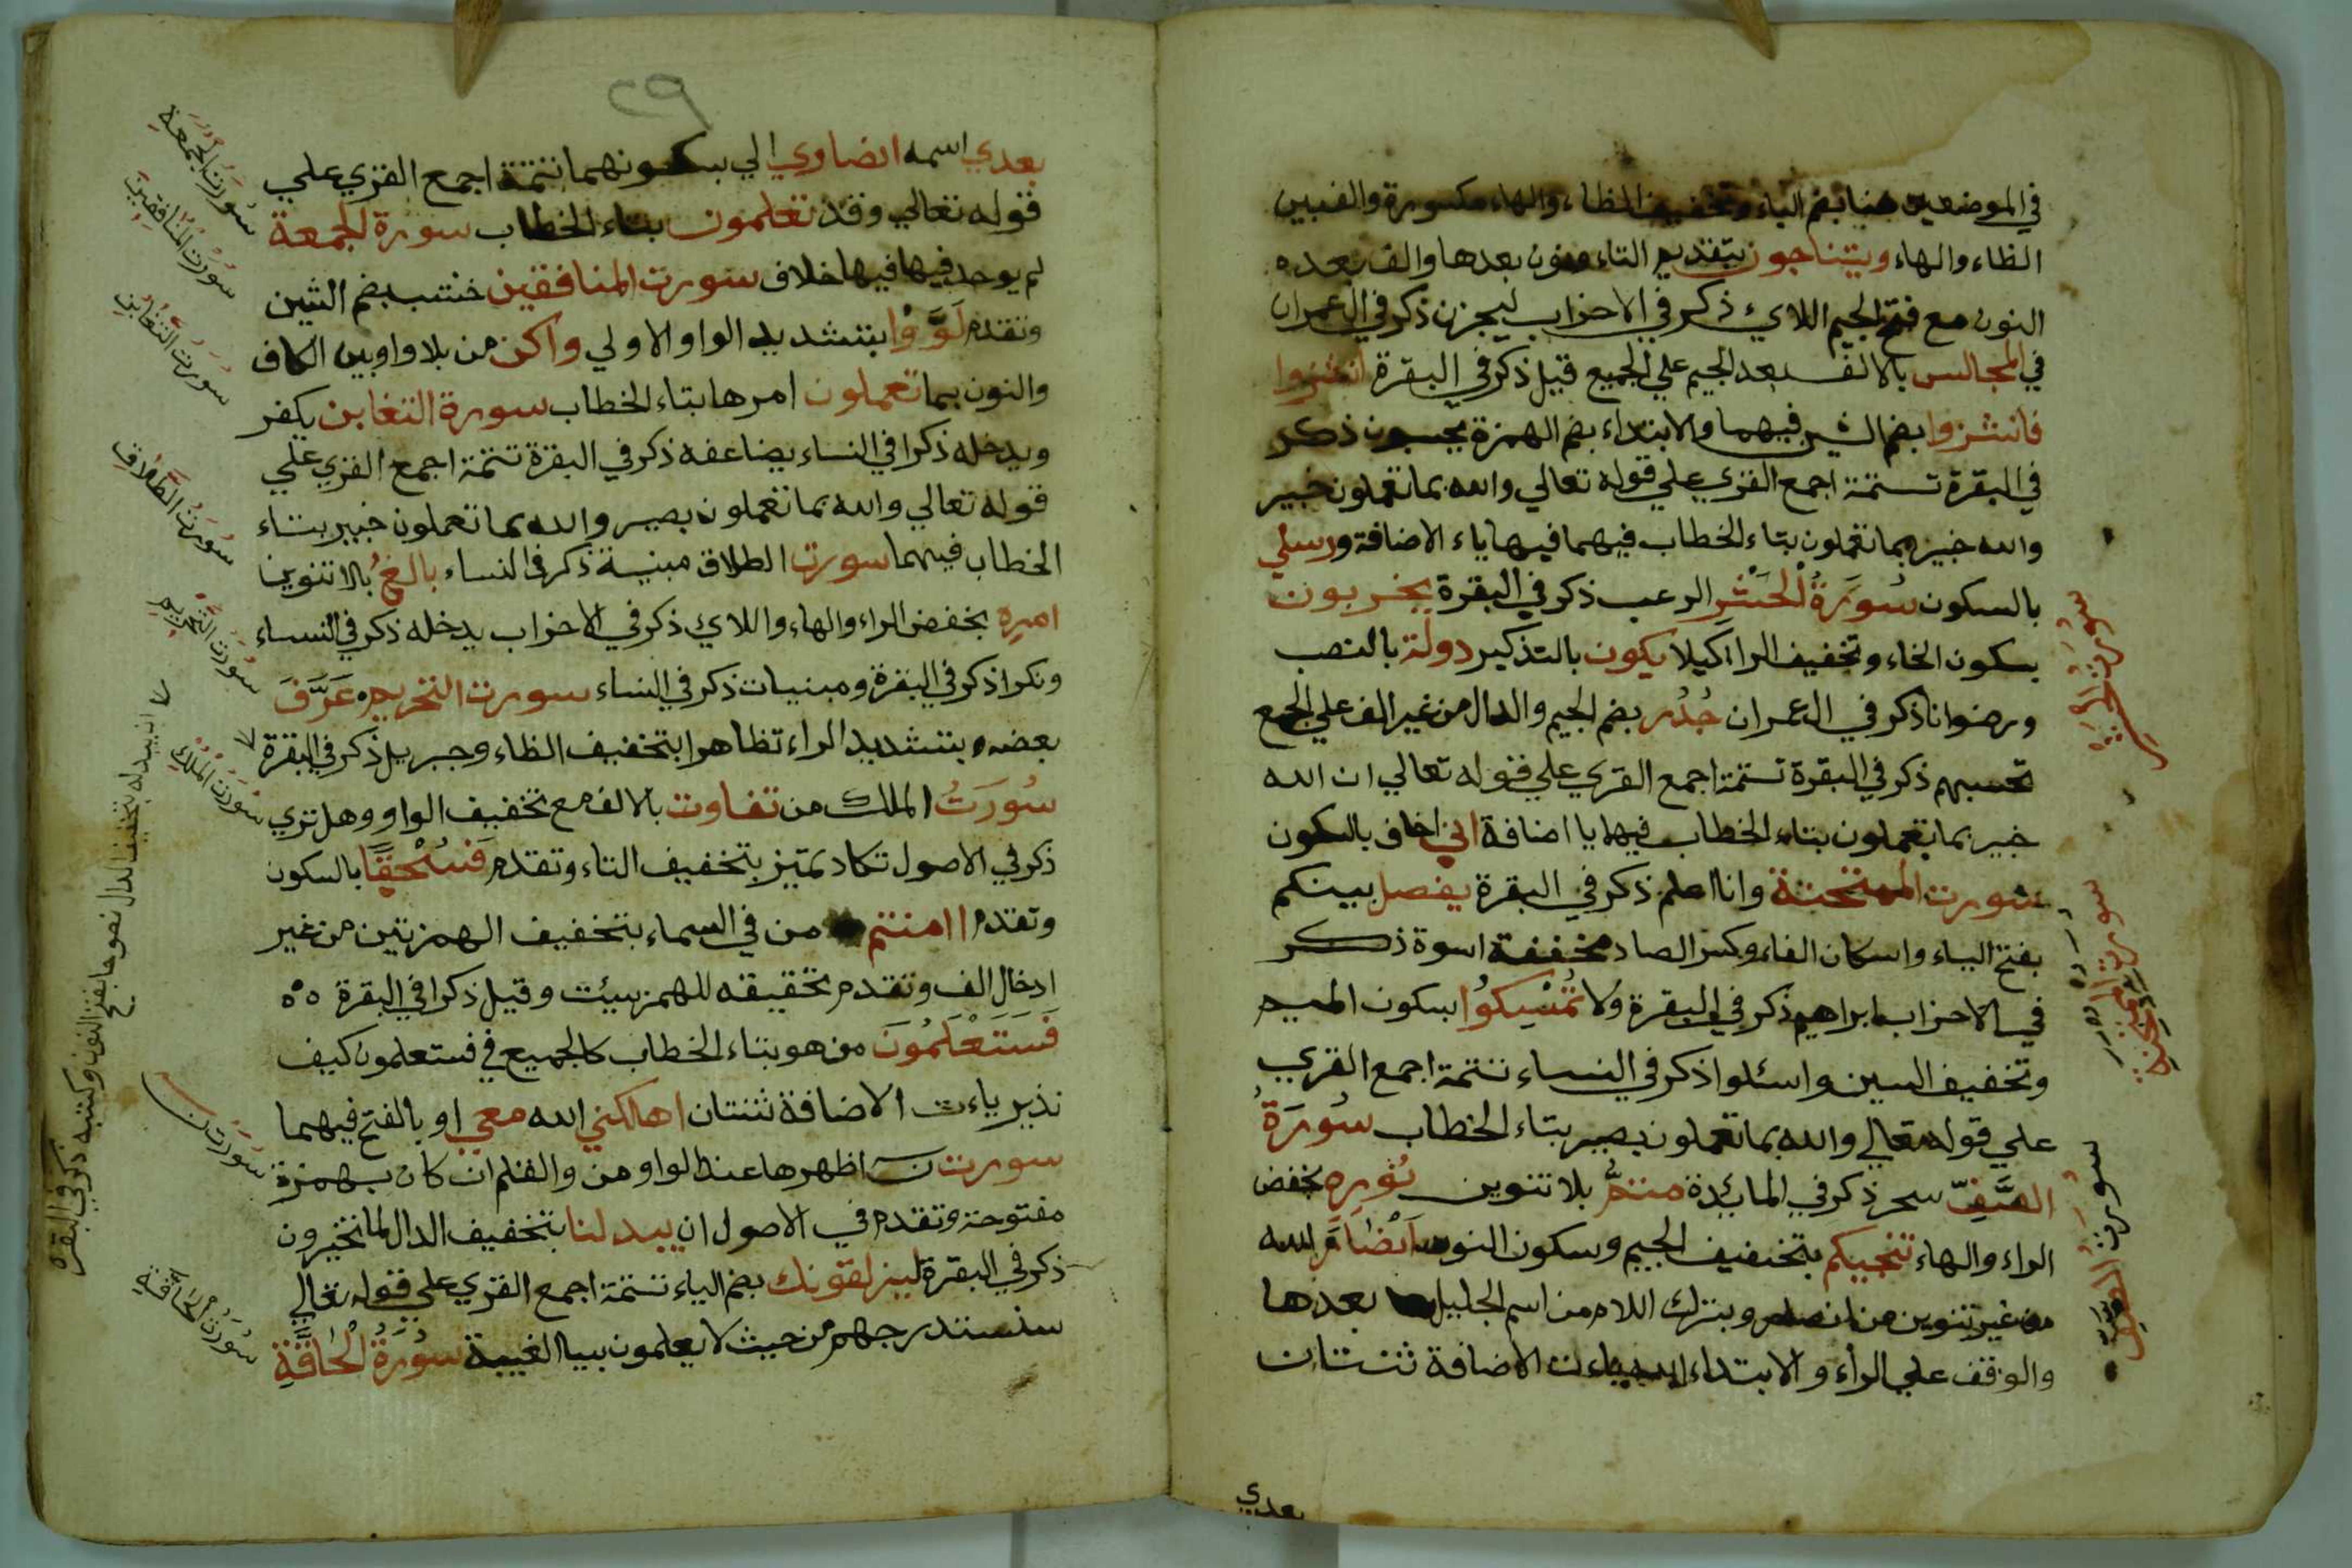 في الموضعين هنا بضم الياء وتخفيف الظاء والهاء مكسورة والف بين
الظاء والهاء ويتناجون بتقديم التاء ونون بعدها والف بعده
النون مع فتح الجيم اللاي ذكر في الاحزاب ليحزن ذكر في ال عمران
في المجالس بالالف بعد الجيم علي الجميع قيل ذكر في البقرة انشزوا
فانشزوا بضم الشين فيهما والابتداء بضم الهمزة يحسبون ذكر
في البقرة تستمة اجمع القري علي قوله تعالي والله بما تعملون خبير
والله خبير بما تعملون بتاء الخطاب فيهما فيها ياء الاضافة ورسلي
بالسكون سُورَةُ الْحَشْرِ الرعب ذكر في البقرة يخربون
بسكون الخاء وتخفيف الرا كيلا يكون بالتذكير دولة بالنصب
ورضوانا ذكر في ال عمران جُدُر بضم الجيم والدال من غير الف علي الجمع
تحسبهم ذكر في البقرة تستمة اجمع القري علي قوله تعالي ان الله
خبير بما تعملون بتاء الخطاب فيها يا اضافة اني اخاف بالسكون
سورت الممتحنة وانا اعلم ذكر في البقرة يفصل بينكم
بفتح الياء واسكان الفاء وكسر الصاد مخففة اسوة ذكر
في الاحزاب ابراهيم ذكر في البقرة ولا تُمْسِكُوا بسكون الميم
وتخفيف السين واسئلوا ذكر في النساء تتمة اجمع القري
علي قوله تعالي والله بما تعملون بصير بتاء الخطاب سُورَةُ
الصَّفِّ سحر ذكر في المائدة متمُّ بلا تنوين نُورِهِ بخفض
الراء والهاء تنجيكم بتخفيف الجيم وسكون النون اَنْصَارَ الله
من غير تنوين من انصار وبترك اللام من اسم الجليل بعدها
والوقف علي الراء والابتداء الله ياءات الاضافة ثنتان
بعدي
سورت الحشر
سورت الممتحنة
سورت الصف
٢٩
بعدي اسمه انصاري الي بسكونهما تتمة اجمع القري علي
قوله تعالي وقد تعلمون بتاء الخطاب سورة الجمعة
لم يوجد فيها فيها خلاف سورت المنافقين خشب بضم الشين
وتقدم لَوَّوْا بتشديد الواو الاولي واكن من بلا واو بين الكاف
والنون بما تعملون امرها بتاء الخطاب سورة التغابن يكفر
ويدخله ذكرا في النساء يضاعفه ذكر في البقرة تتمة اجمع القري علي
قوله تعالي والله بما تعملون بصير والله بما تعملون خبير بتاء
الخطاب فيهما سورت الطلاق مبنية ذكر في النساء بالغُ بالاتنوين
امرِهِ بخفض الراء والهاء واللاي ذكر في الاحزاب يدخله ذكر في النساء
ونكرا ذكر في البقرة ومبنيات ذكر في النساء سورت التحريم عَرَّفَ
بعضه بتشديد الراء تظاهرا بتخفيف الظاء وجبريل ذكر في البقرة
سُورَتُ الملك من تفاوت بالالف مع تخفيف الواو وهل تري
ذكر في الاصول تكاد تميز بتخفيف التاء وتقدم فَسُحْقًا بالسكون
وتقدم اامنتم من في السماء بتخفيف الهمزتين من غير
ادخال الف وتقدم تحقيقه للهمز سيئت وقيل ذكرا في البقرة
فَسَتَعْلَمُونَ من هو بتاء الخطاب كالجميع في فستعلمون كيف
نذير ياءات الاضافة ثنتان اهلكني الله معي او بالفتح فيهما
سورت ن اظهرها عند الواو من والقلم ان كان بهمزة
مفتوحة وتقدم في الاصول ان يبدلنا بتخفيف الدال لما تخيرون
ذكر في البقرة ليزلقونك بضم الياء تتمة اجمع القري علي قوله تعالي
سنستدرجهم من حيث لا يعلمون بيا الغيبة سُورَةُ الْحَاقَّةِ
سورت الجمعة
سورت المنافقين
سورت التغابن
سورت الطلاق
سورت التحريم
سورت الملك
سورت ن
سورت الحاقة
ان يبدله بتخفيف الدال نصوحا بفتح النون وكتبه ذكر في البقره